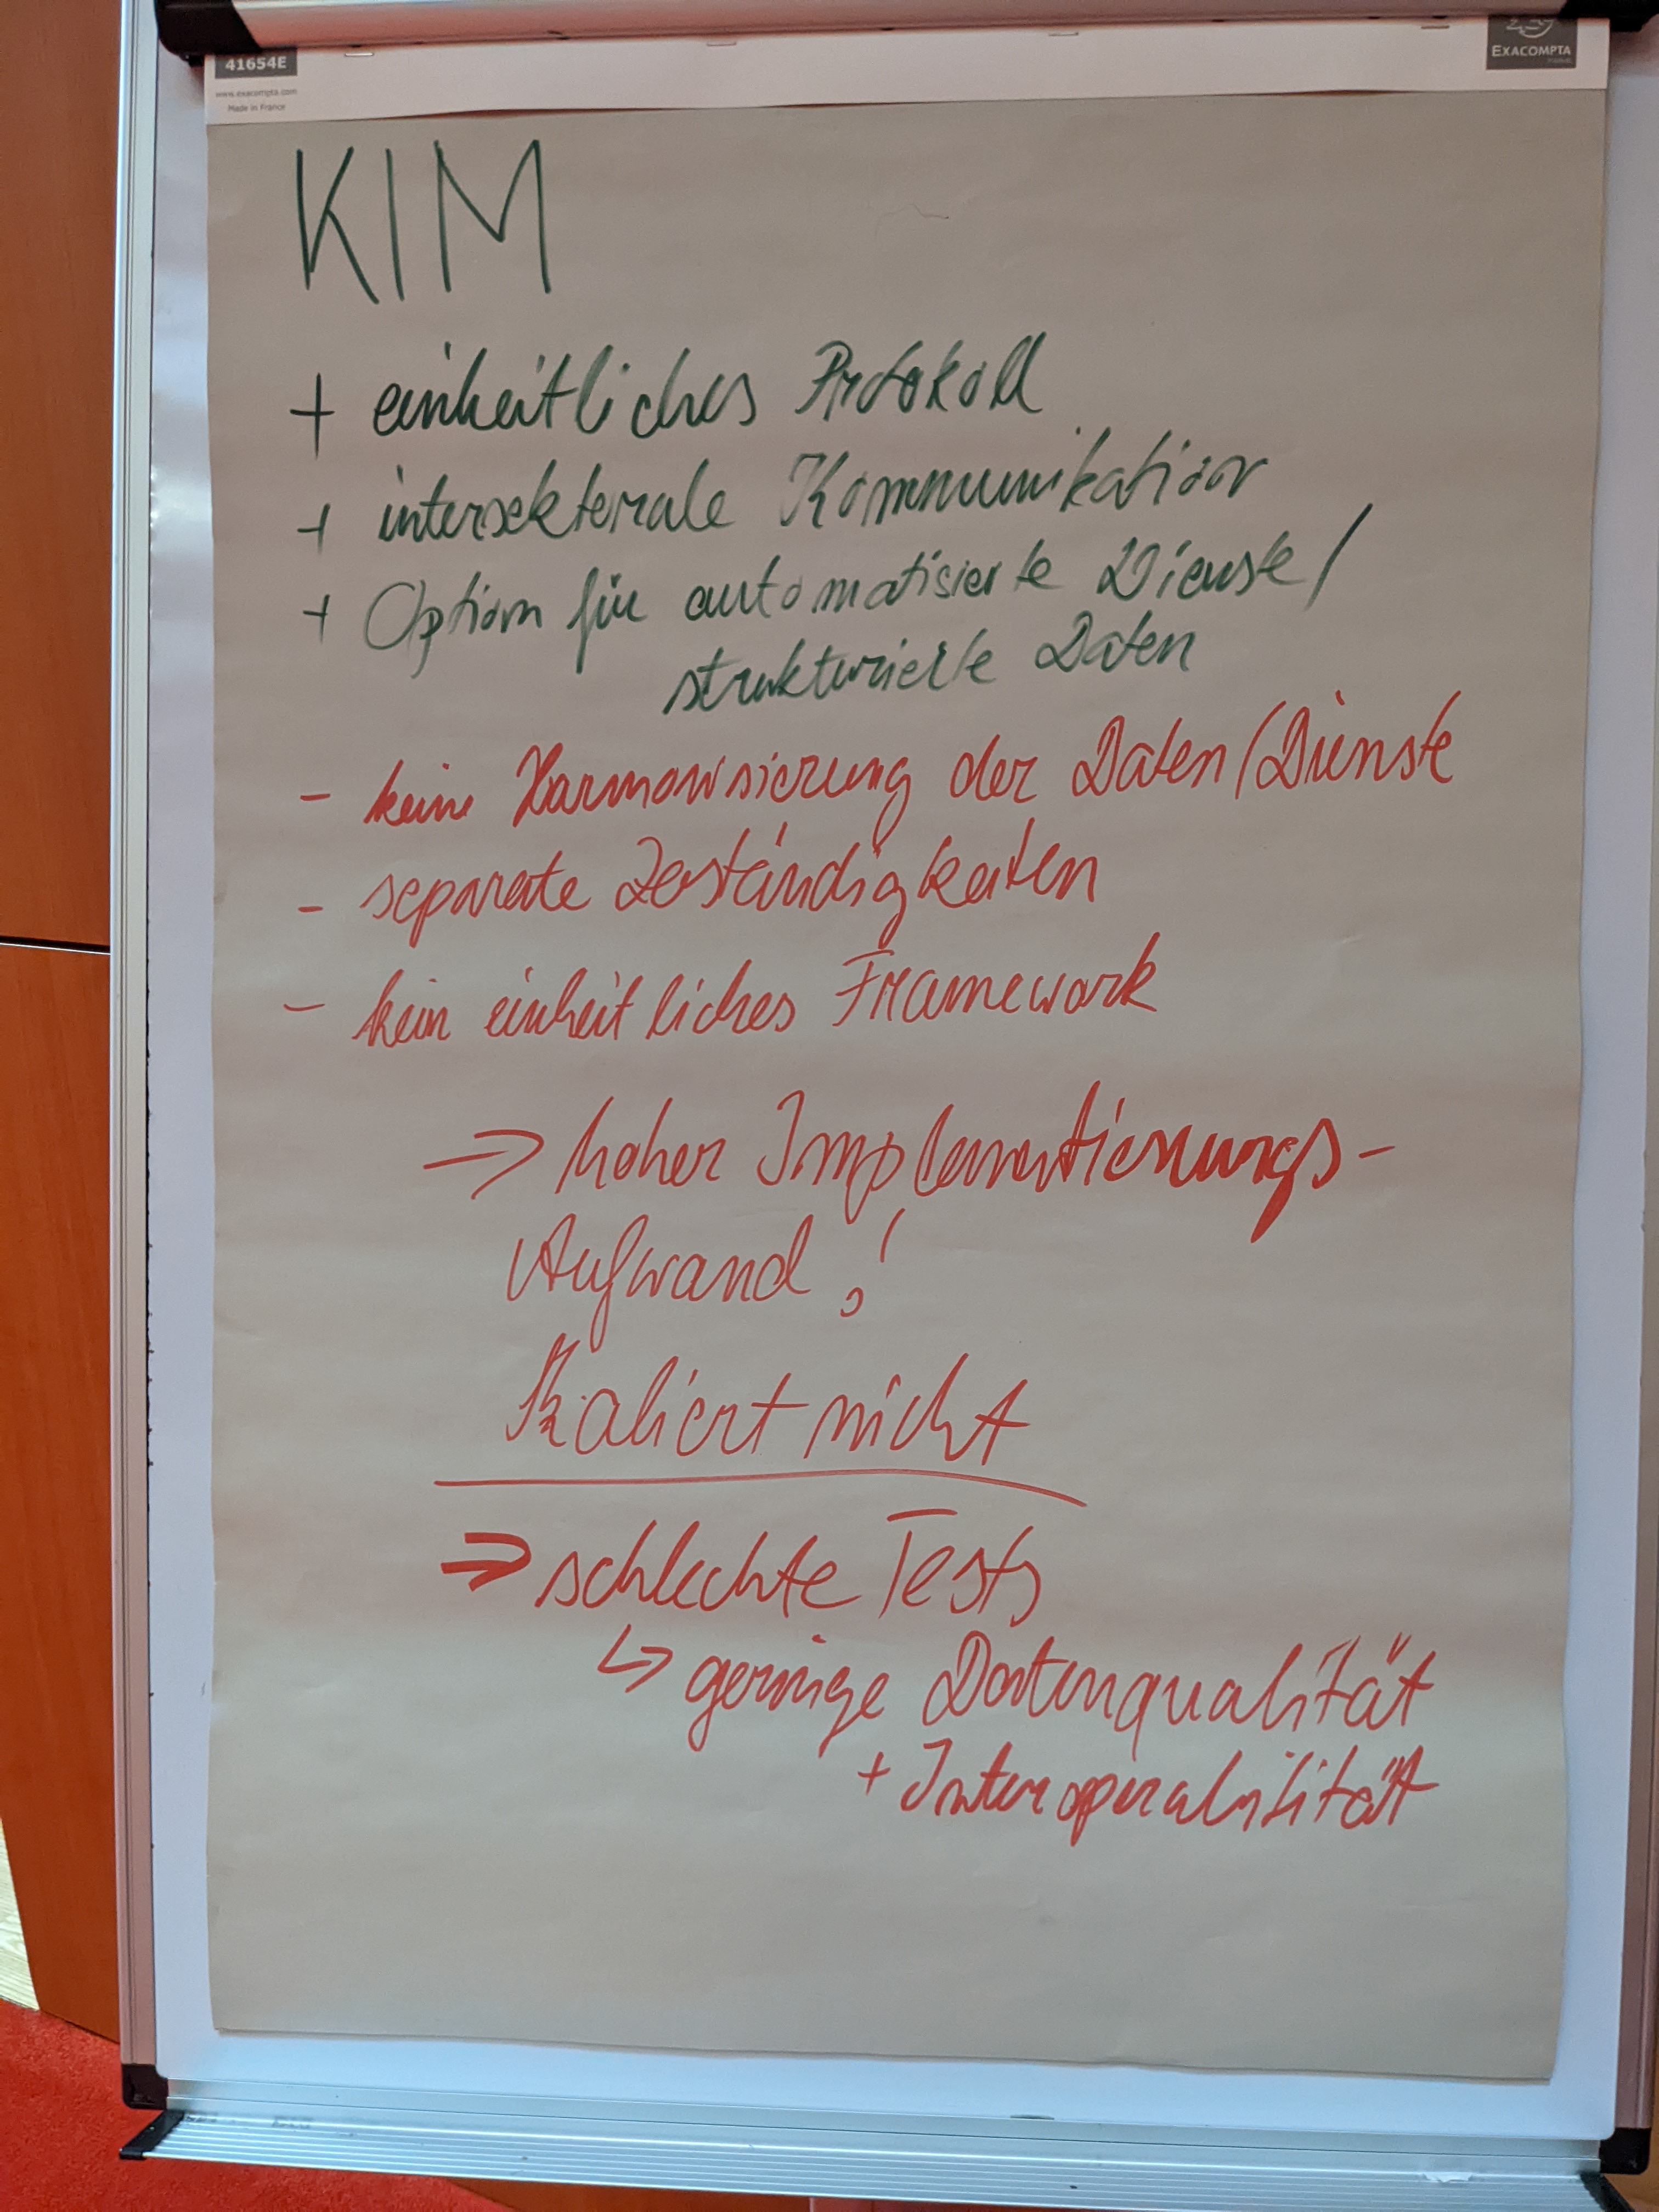 41654E
www.exacompta.com
Made in France
EXACOMPTA
KIM
+ einheitliches Protokoll
+ intersektorale Kommunikation
+ Option für automatisierte Dienste/
strukturierte Daten
- keine Harmonisierung der Daten/Dienste
- separate Zuständigkeiten
- kein einheitliches Framework
→ hoher Implementierungs-
Aufwand!
Skaliert nicht
⇒ schlechte Tests
↳ geringe Datenqualität
+ Interoperabilität